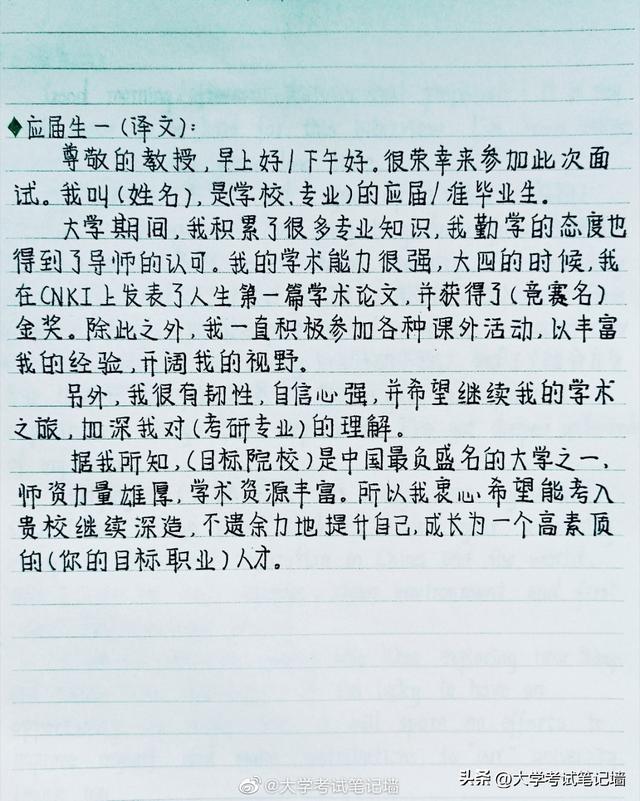 ◆应届生一(译文):
尊敬的教授,早上好/下午好。很荣幸来参加此次面
试。我叫(姓名),是(学校、专业)的应届/准毕业生。
大学期间,我积累了很多专业知识,我勤学的态度也
得到了导师的认可。我的学术能力很强,大四的时候,我
在CNKI上发表了人生第一篇学术论文,并获得了(竞赛名)
金奖。除此之外,我一直积极参加各种课外活动,以丰富
我的经验,开阔我的视野。
另外,我很有韧性,自信心强,并希望继续我的学术
之旅,加深我对(考研专业)的理解。
据我所知,(目标院校)是中国最负盛名的大学之一,
师资力量雄厚,学术资源丰富。所以我衷心希望能考入
贵校继续深造,不遗余力地提升自己,成长为一个高素质
的(你的目标职业)人才。
@大学考试笔记墙
头条@大学考试笔记墙